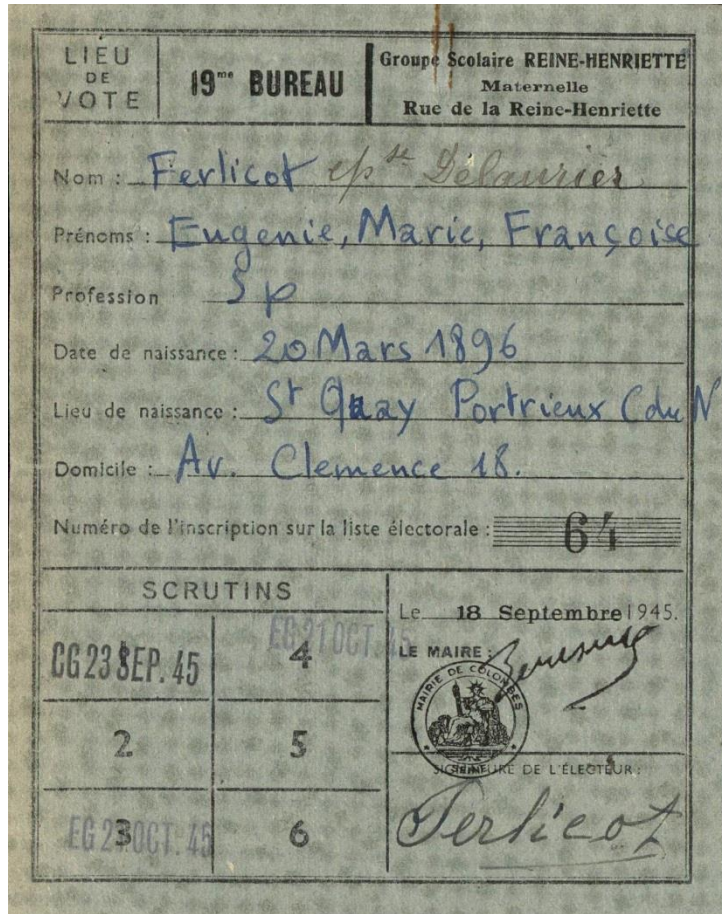 LIEU
DE
VOTE
19me BUREAU
Groupe Scolaire REINE-HENRIETTE
Maternelle
Rue de la Reine-Henriette
Nom : Ferlicot epse Délaurier
Prénoms : Eugenie, Marie, Françoise
Profession Sp
Date de naissance : 20 Mars 1896
Lieu de naissance : St Quay Portrieux C du N
Domicile : Av. Clemence 18.
Numéro de l'inscription sur la liste électorale : 64
SCRUTINS
CG 23 SEP. 45
EG 21 OCT. 45
4
2
5
EG 21 OCT. 45
3
6
Le 18 Septembre 1945.
LE MAIRE :
MAIRIE DE COLOMBES
SIGNATURE DE L'ÉLECTEUR :
Ferlicot